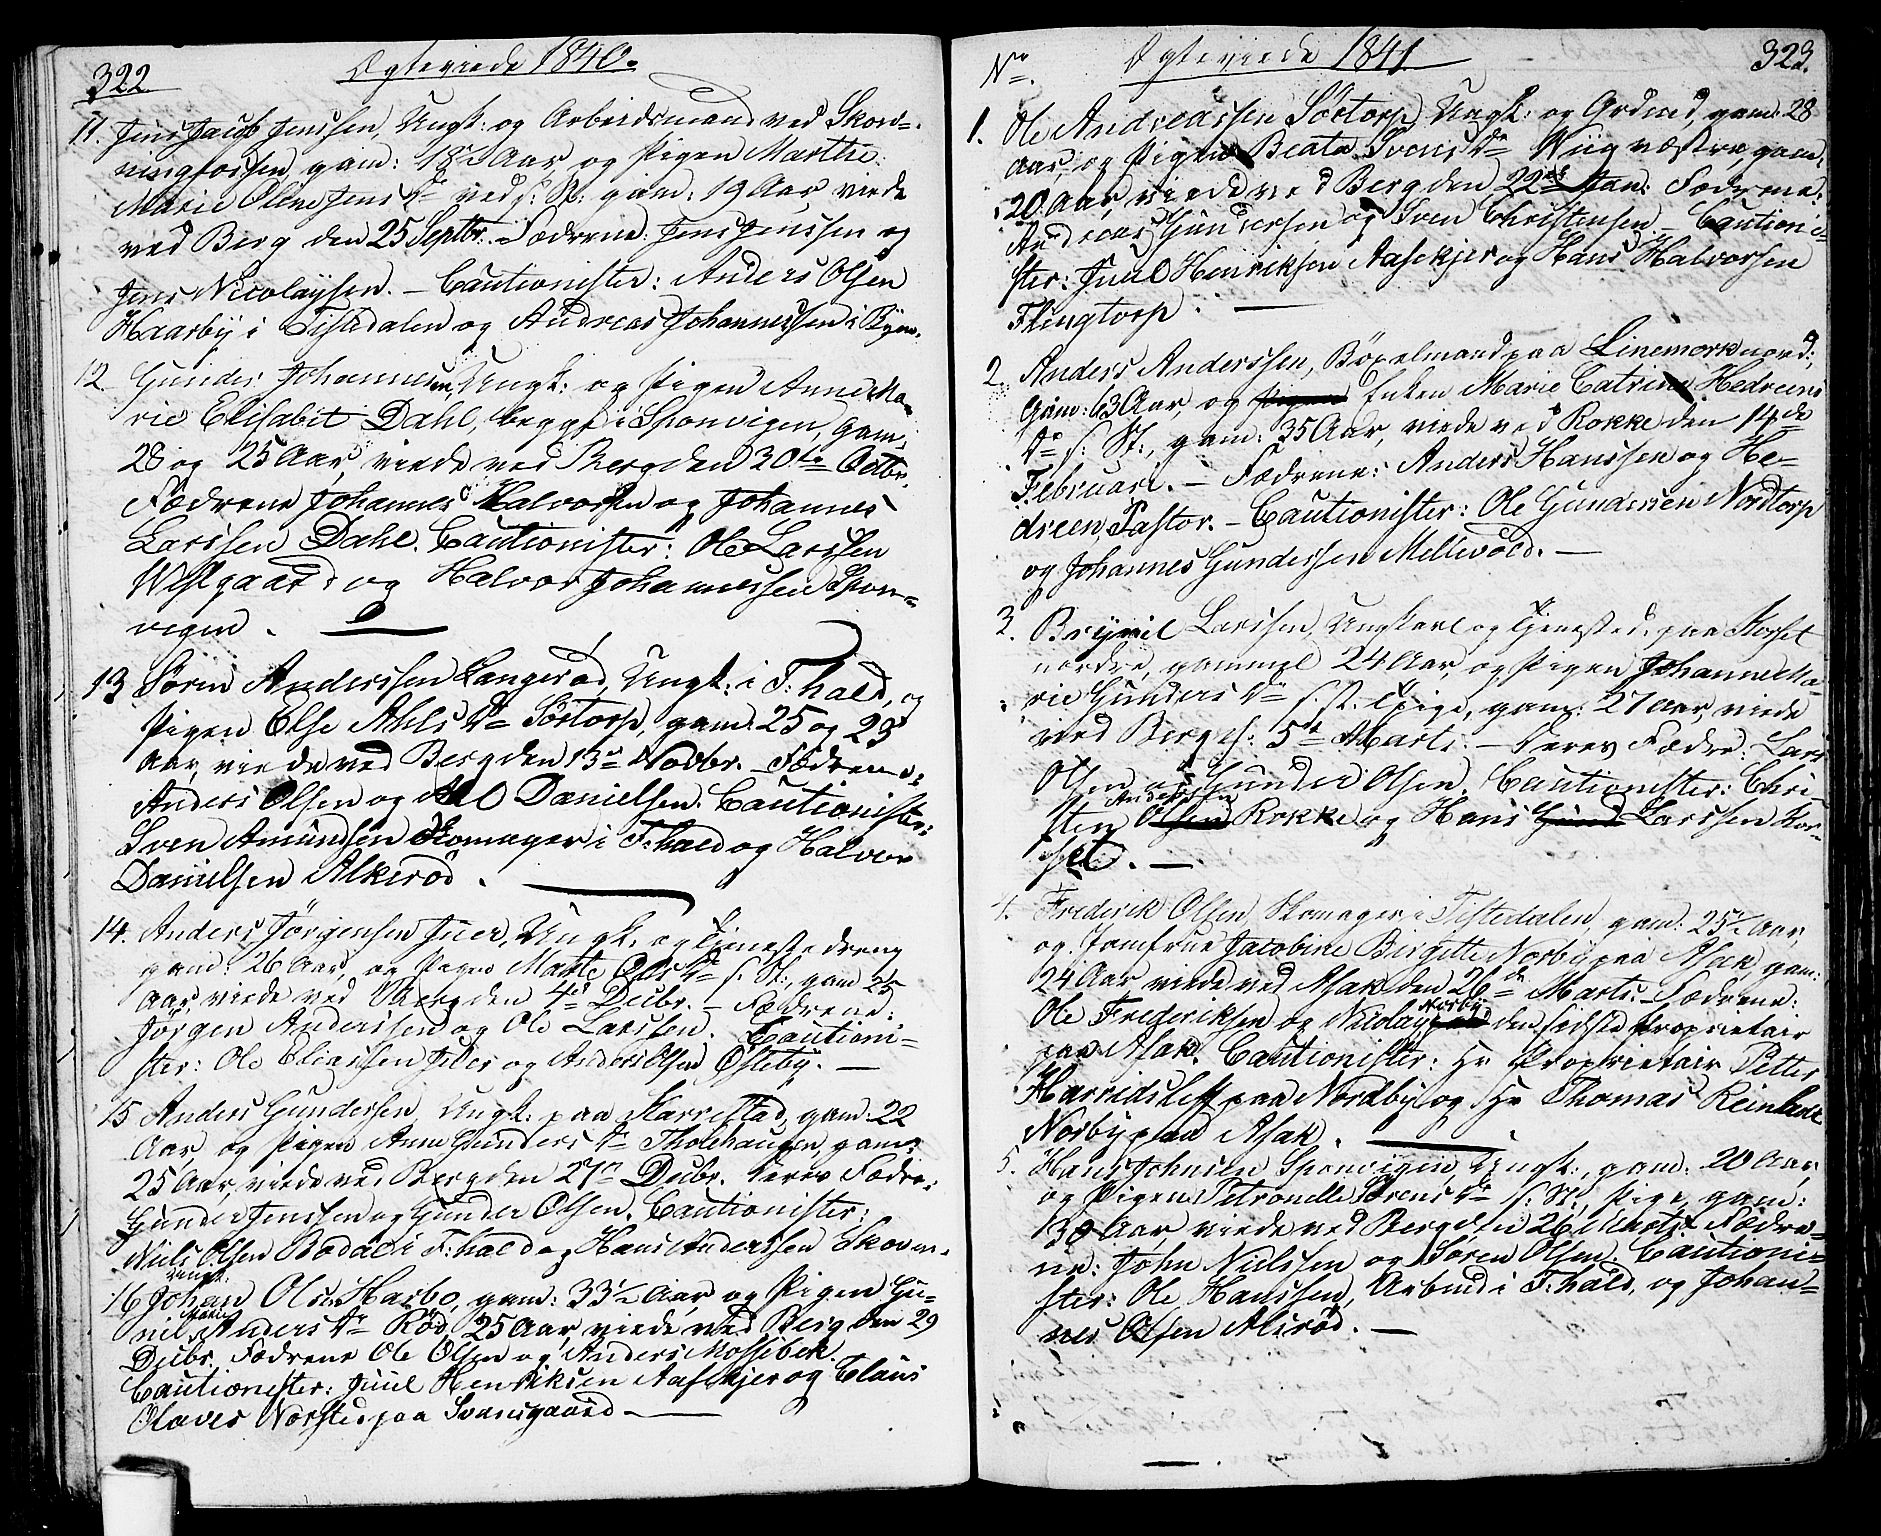 322
Ægteviede 1840.
11. Jens Jacob Jenssen, Ungk: og Arbeidsmand ved Skon-
ningfossen, gam: 18½ Aar, og Pigen Marthe
Marie Oline Jens Dr ved s: St: gam: 19 Aar, viede
ved Berg den 25 Septbr. Fædrene: Jens Jenssen og
Jens Nicolaysen. – Cautionister: Anders Olsen
Haarby i Tistedalen og Andreas Johannessen i Byen.
12. Gunder Johannessen, Ungk: og Pigen Anne Ma-
rie Elisabit Dahl, begge i Sponvigen, gam:
28 og 25 Aar, viede ved Berg den 30te Octbr.
Fædrene Johannes Halvorsen og Johannes
Larssen Dahl. Cautionister: Ole Larssen
Westgaard og Halvor Johannessen Spon-
vigen.
13 Søren Anderssen Langerød, Ungk: i F:hald, og
Pigen Else Ahls Dr Sørtorp, gam: 25 og 23
Aar, viede ved Berg den 13de Novbr. Fædrene:
Anders Olsen og Ahl Danielsen. Cautionister:
Sven Amundsen Skomager i F:hald og Halvor
Danielsen Alkerød.
14. Anders Jørgensen Iuer, Ungk: og Tjenestedreng
gam: 26 Aar, og Pigen Marte Ols Dr s: St:, gam 25
Aar, viede ved Berg den 4de Decbr. – Fædrene:
Jørgen Anderssen og Ole Larssen. Cautioni-
ster: Ole Eliassen Iuer og Anders Olsen Østeby. –
15 Anders Gundersen Ungk: paa Karrestad, gam: 22
Aar, og Pigen Anne Gunders Dr Tholehausen, gam:
25 Aar, viede ved Berg den 27de Decbr. Deres Fædre:
Gunder Jenssen og Gunder Olsen. Cautionister:
Niels Olsen Bødal i F:hald og Hans Anderssen
Ungk:
16 Johan Olsen Harbo, gam: 33½ Aar, og Pigen Gu-
Marie
nil Anders Dr Rød, 25 Aar, viede ved Berg den 29
Decbr. Fædrene Ole Olsen og Anders Mosfibek.
Cautionister: Juul Henriksen Aaskjer og Claus
Olaves Norsted paa Svensgaard

No.
Ægteviede 1841
323.
1. Ole Andreassen Sørtorp, Ungk: og Grdmd, gam: 28
Aar, og Pigen Beata Svens Dr Wiig vestre, gam:
20 Aar, viede ved Berg den 22de Jan: Fædrene:
Andreas Gundersen og Sven Christensen. – Cautioni-
ster: Juul Henriksen Aaskjer og Hans Halvorsen
Flingtorp.
2. Anders Anderssen, Bøxelmand paa Linemork nord:
Gam: 63 Aar, og Enken Marie Catrine Hedreens
Dr s: St:, gam: 35 Aar, viede ved Rokke den 14de
Februari. – Fædrene: Anders Hanssen og He-
dreen, Pastor. – Cautionister: Ole Gundersen Nordtorp
og Johannes Gunderssen Mellevold. –
3. Brynil Larssen, Ungkarl og Tjenested. paa Korset
nordre, gammel 24 Aar, og Pigen Johanne Ma-
rie Gunders Dr s: St. Pige, gam: 27 Aar, viede
ved Berg d: 5te Marts. – Deres Fædre: Lars
Olsen og Gunder Olsen. Cautionister: Chri
Anderssen
sten Rokke og Hans Larssen Kor-
set. –
4. Frederik Olsen, Skomager i Tistedalen, gam: 25½ Aar,
og Jomfrue Jacobine Birgitte Norby paa Asak, gam:
24 Aar viede ved Asak den 26de Marts. Fædrene:
Norby
Ole Frederiksen og Nicolay den sidste Proprietair
paa Asak. Cautionister: Hr Proprietair Petter
Harridslett paa Nordby og Hr Thomas Reinhardt
Norby paa Asak.
5. Hans Johnsen Sponvigen, Ungk:, gam: 20 Aar,
og Pigen Petronelle Sørens Dr s: St: Pige, gam:
30 Aar, viede ved Berg den 26 Marts. Fædre-
ne: John Nielssen og Søren Olsen. Cautioni-
ster: Ole Hanssen, Arbmd i F:hald, og Johan-
nes Olsen Alerød. –